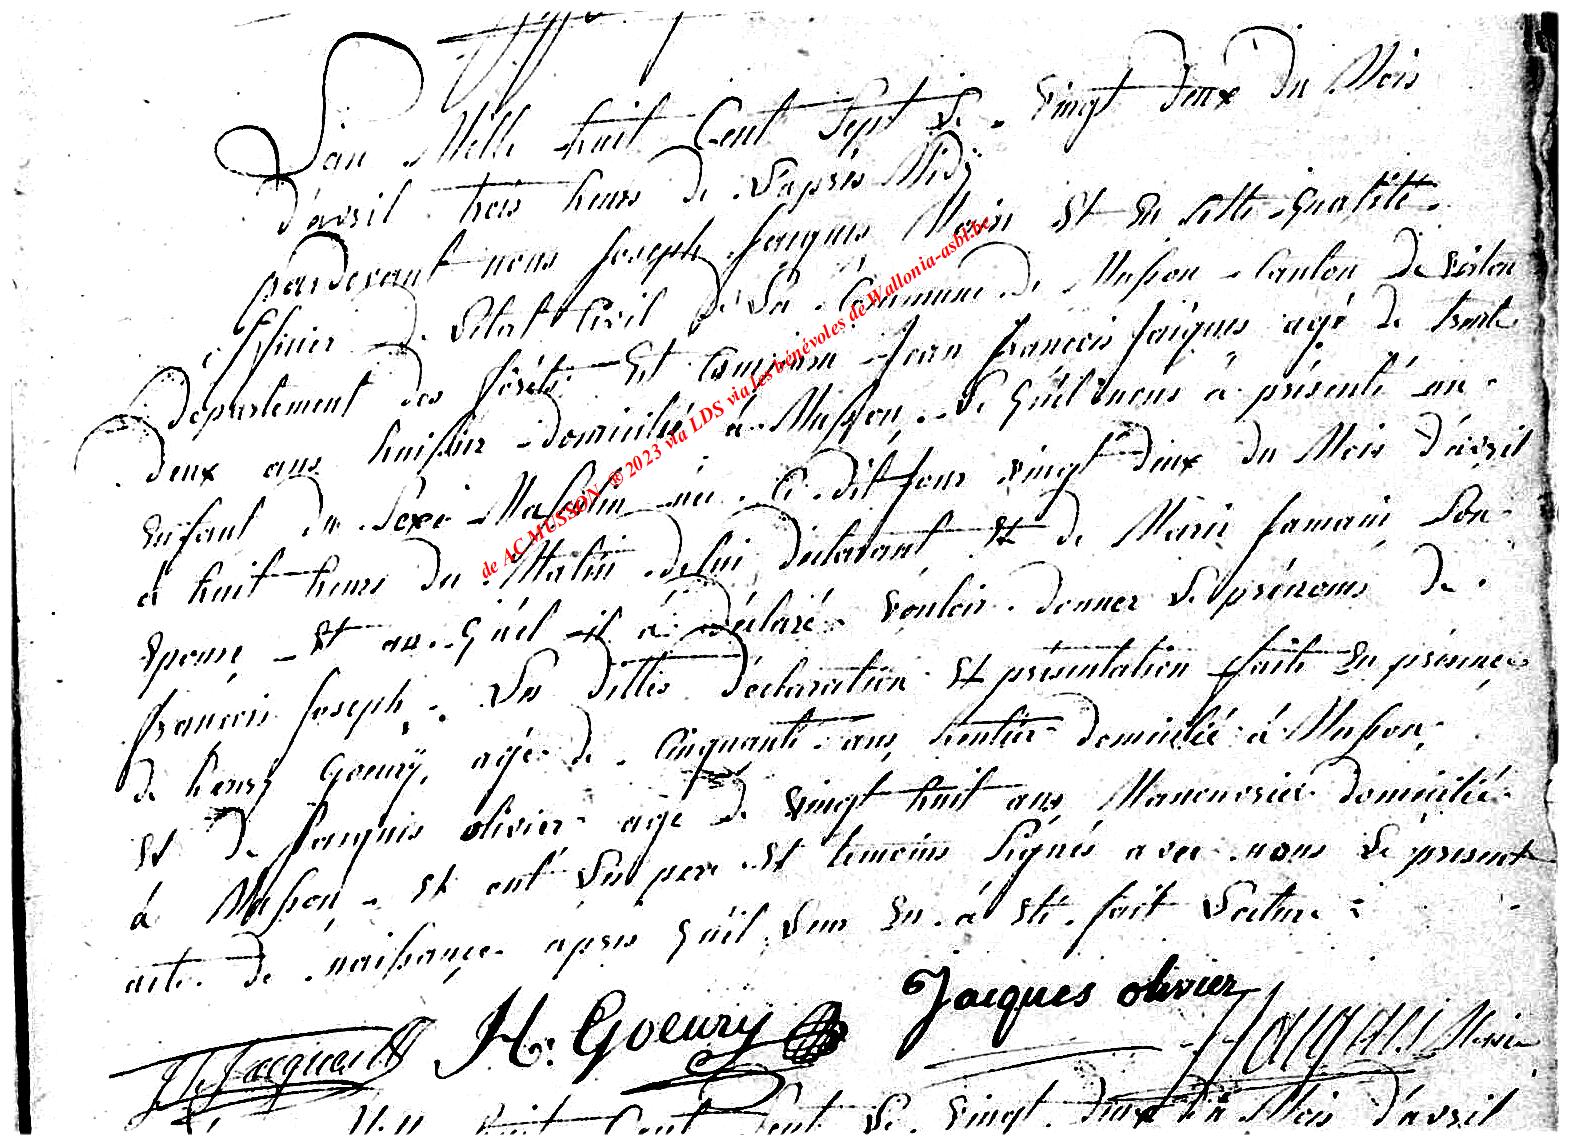 L'an Mille huit Cent Sept Le vingt deux du Mois
d'avril trois heures de L'après Midy
pardevant nous Joseph Jacques Maire Et En Cette Qualité
officier de L'état Civil De La Commune de Musson Canton de virton
Departement des forêts Est Comparu Jean François Jacques agé de trente
Deux ans huissier domicilié à Musson, Le Quel nous à présenté un
Enfant du Sexe Masculin né Ce dit Jour vingt deux du Mois d'avril
à huit heures du Matin de lui déclarant Et de Marie Jamain Son
Epouse Et au Quel il à déclaré vouloir donner Le prénoms de
François Joseph. Les dittes déclaration Et présentation faite En présence
de henry Goeury, agé de Cinquante ans, Rentier domicilié à Musson,
Et de Jacques olivier agé de vingt huit ans Manouvrier domicilié
à Musson, Et ont Les pere Et temoins Signés avec nous Le présent
acte de naissance après Qu'il Leur En à Eté fait Lecture
Jacques olivier
JF Jacques H. Goeury Jacques Maire
Mill huit Cent Sept Le vingt deux du Mois d'avril
de AC MUSSON ® 2023 via LDS via les bénévoles de Wallonia-asbl.be